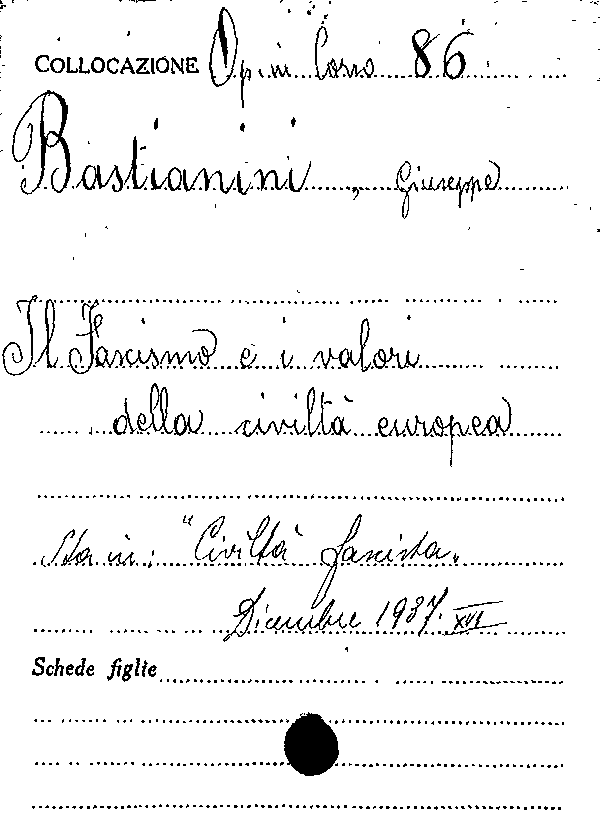 COLLOCAZIONE Op. in Corso 86
Bastianini, Giuseppe
Il Fascismo e i valori
della civiltà europea
Sta in: "Civiltà fascista"
Dicembre 1937. XVI
Schede figlie